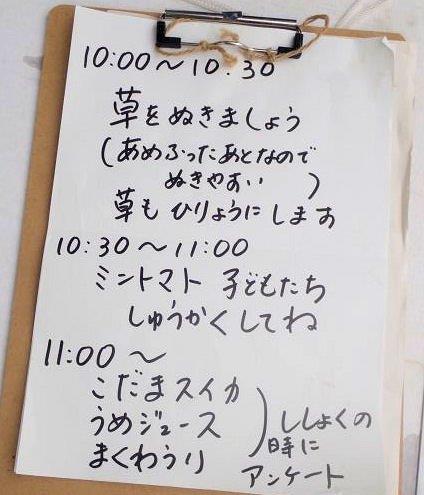 10:00〜10:30
草をぬきましょう
(あめふったあとなので
ぬきやすい)
草もひりょうにします
10:30〜11:00
ミントマト 子どもたち
しゅうかくしてね
11:00〜
こだまスイカ
うめジュース
まくわうり
)ししょくの
時に
アンケート